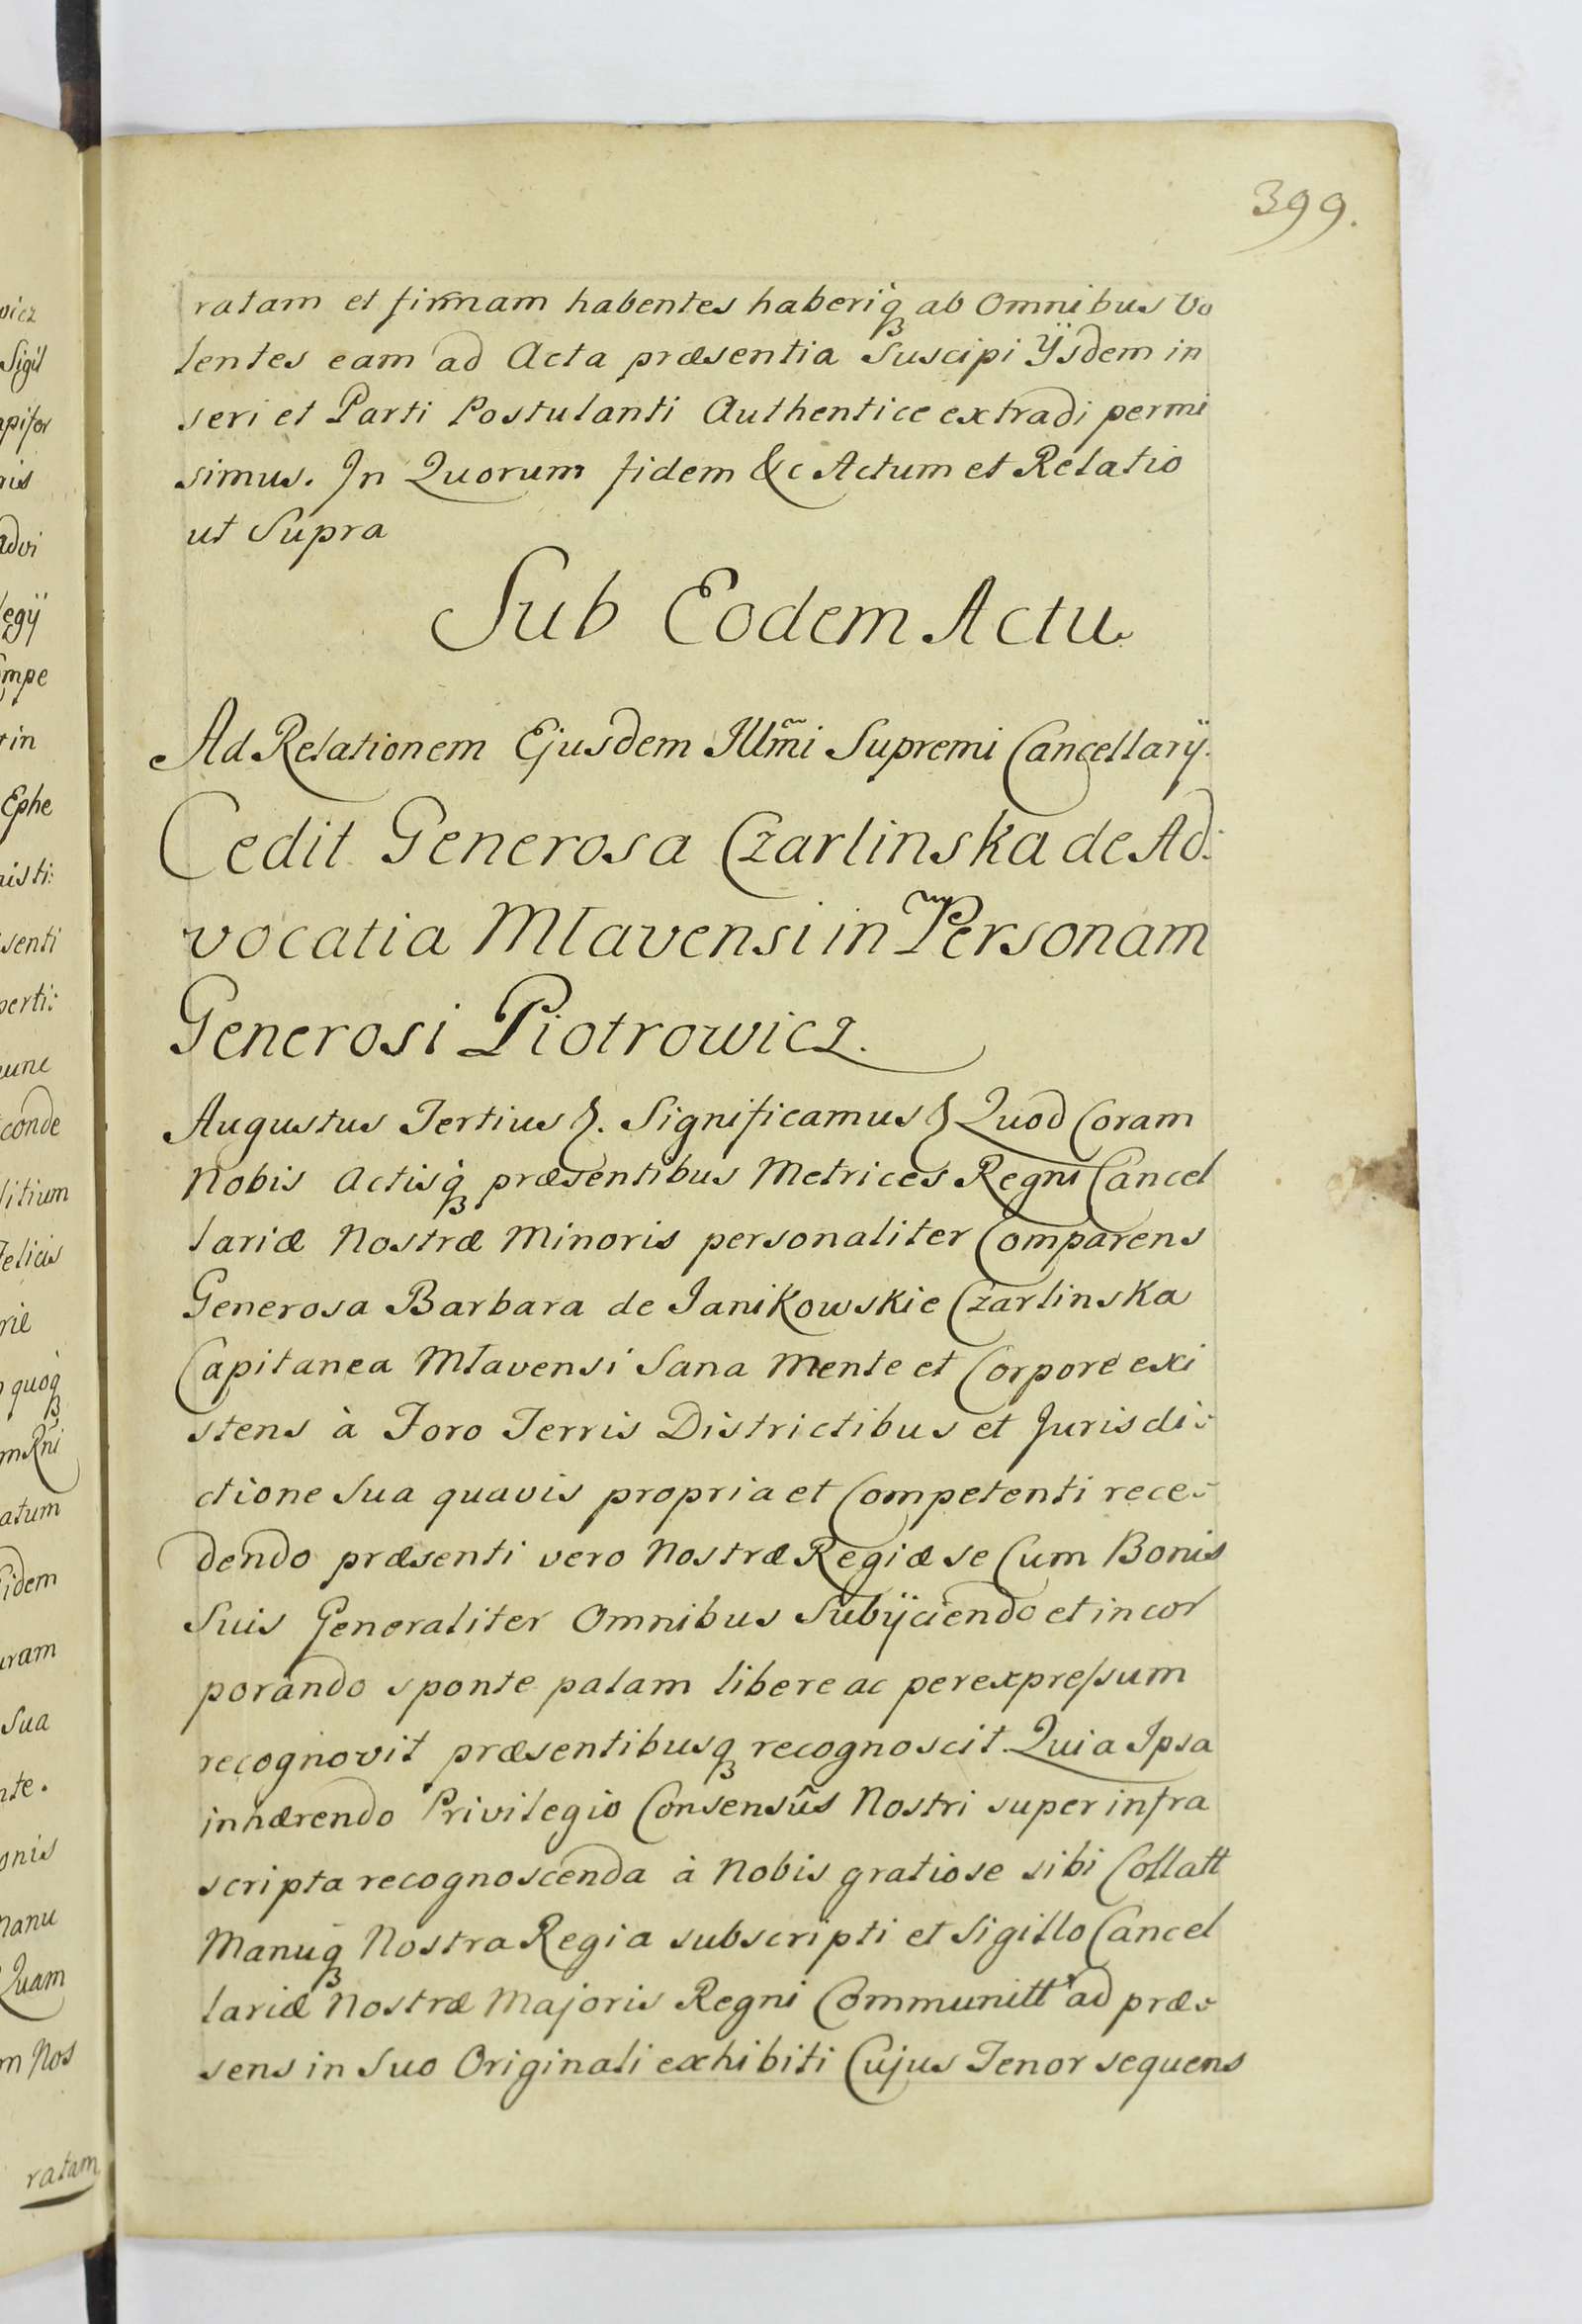 399.
ratam et firmam habentes haberiq́ꝫ ab Omnibus Vo
lentes eam ad Acta præsentia Suscipi Ÿsdem in
seri et Parti Postulanti Authentice extradi permi
simus. In Quorum fidem &c Actum et Relatio
ut Supra
Sub Eodem Actu
Ad Relationem Ejusdem Illm̃i Supremi Cancellarÿ.
Cedit Generosa Czarlinska de Ad:
vocatia Mlavensi in Personam
Generosi Piotrowicz.
Augustus Tertius &. Significamus & Quod Coram
Nobis Actisq́ꝫ præsentibus Metrices Regni Cancel
lariæ Nostræ Minoris personaliter Comparens
Generosa Barbara de Janikowskie Czarlinska
Capitanea Mlavensi Sana Mente et Corpore exi
stens à Foro Terris Districtibus et Jurisdi:
ctione Sua quavis propria et Competenti rece:
dendo præsenti vero Nostræ Regiæ se Cum Bonis
Suis Generaliter Omnibus Subÿciendo et incor
porando sponte palam libere ac per expressum
recognovit præsentibusqꝫ recognoscit. Quia Ipsa
inhærendo Privilegio Consensûs Nostri super infra
scripta recognoscenda à Nobis gratiose sibi Collatt
Manuqꝫ Nostra Regia subscripti et Sigillo Cancel
lariæ Nostræ Majoris Regni Communitt ad præ:
sens in Suo Originali exhibiti Cujus Tenor sequens
wicz
Sigil
nis
advi
legÿ
mpe
in
Ephe
risti:
senti
perti:
conde
litium
felicis
quoqꝫ
atum
fidem
Sua
nte.
onis
manu
Quam
m Nos
ratam